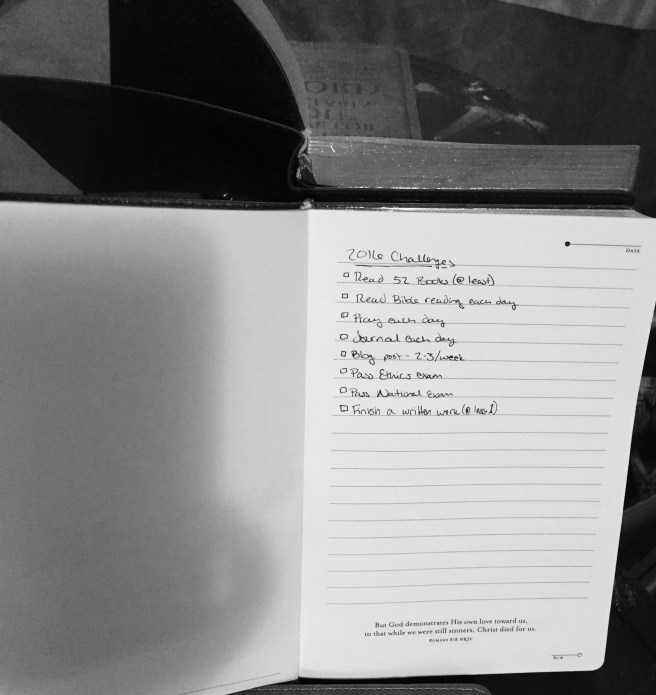 DATE
2016 Challenges
Read 52 Books (@ least)
Read Bible reading each day
Pray each day
Journal each day
Blog post - 2-3/week
Pass Ethics exam
Pass National Exam
Finish a written work (@ least 1)
But God demonstrates His own love toward us,
in that while we were still sinners, Christ died for us.
ROMANS 5:8 NKJV